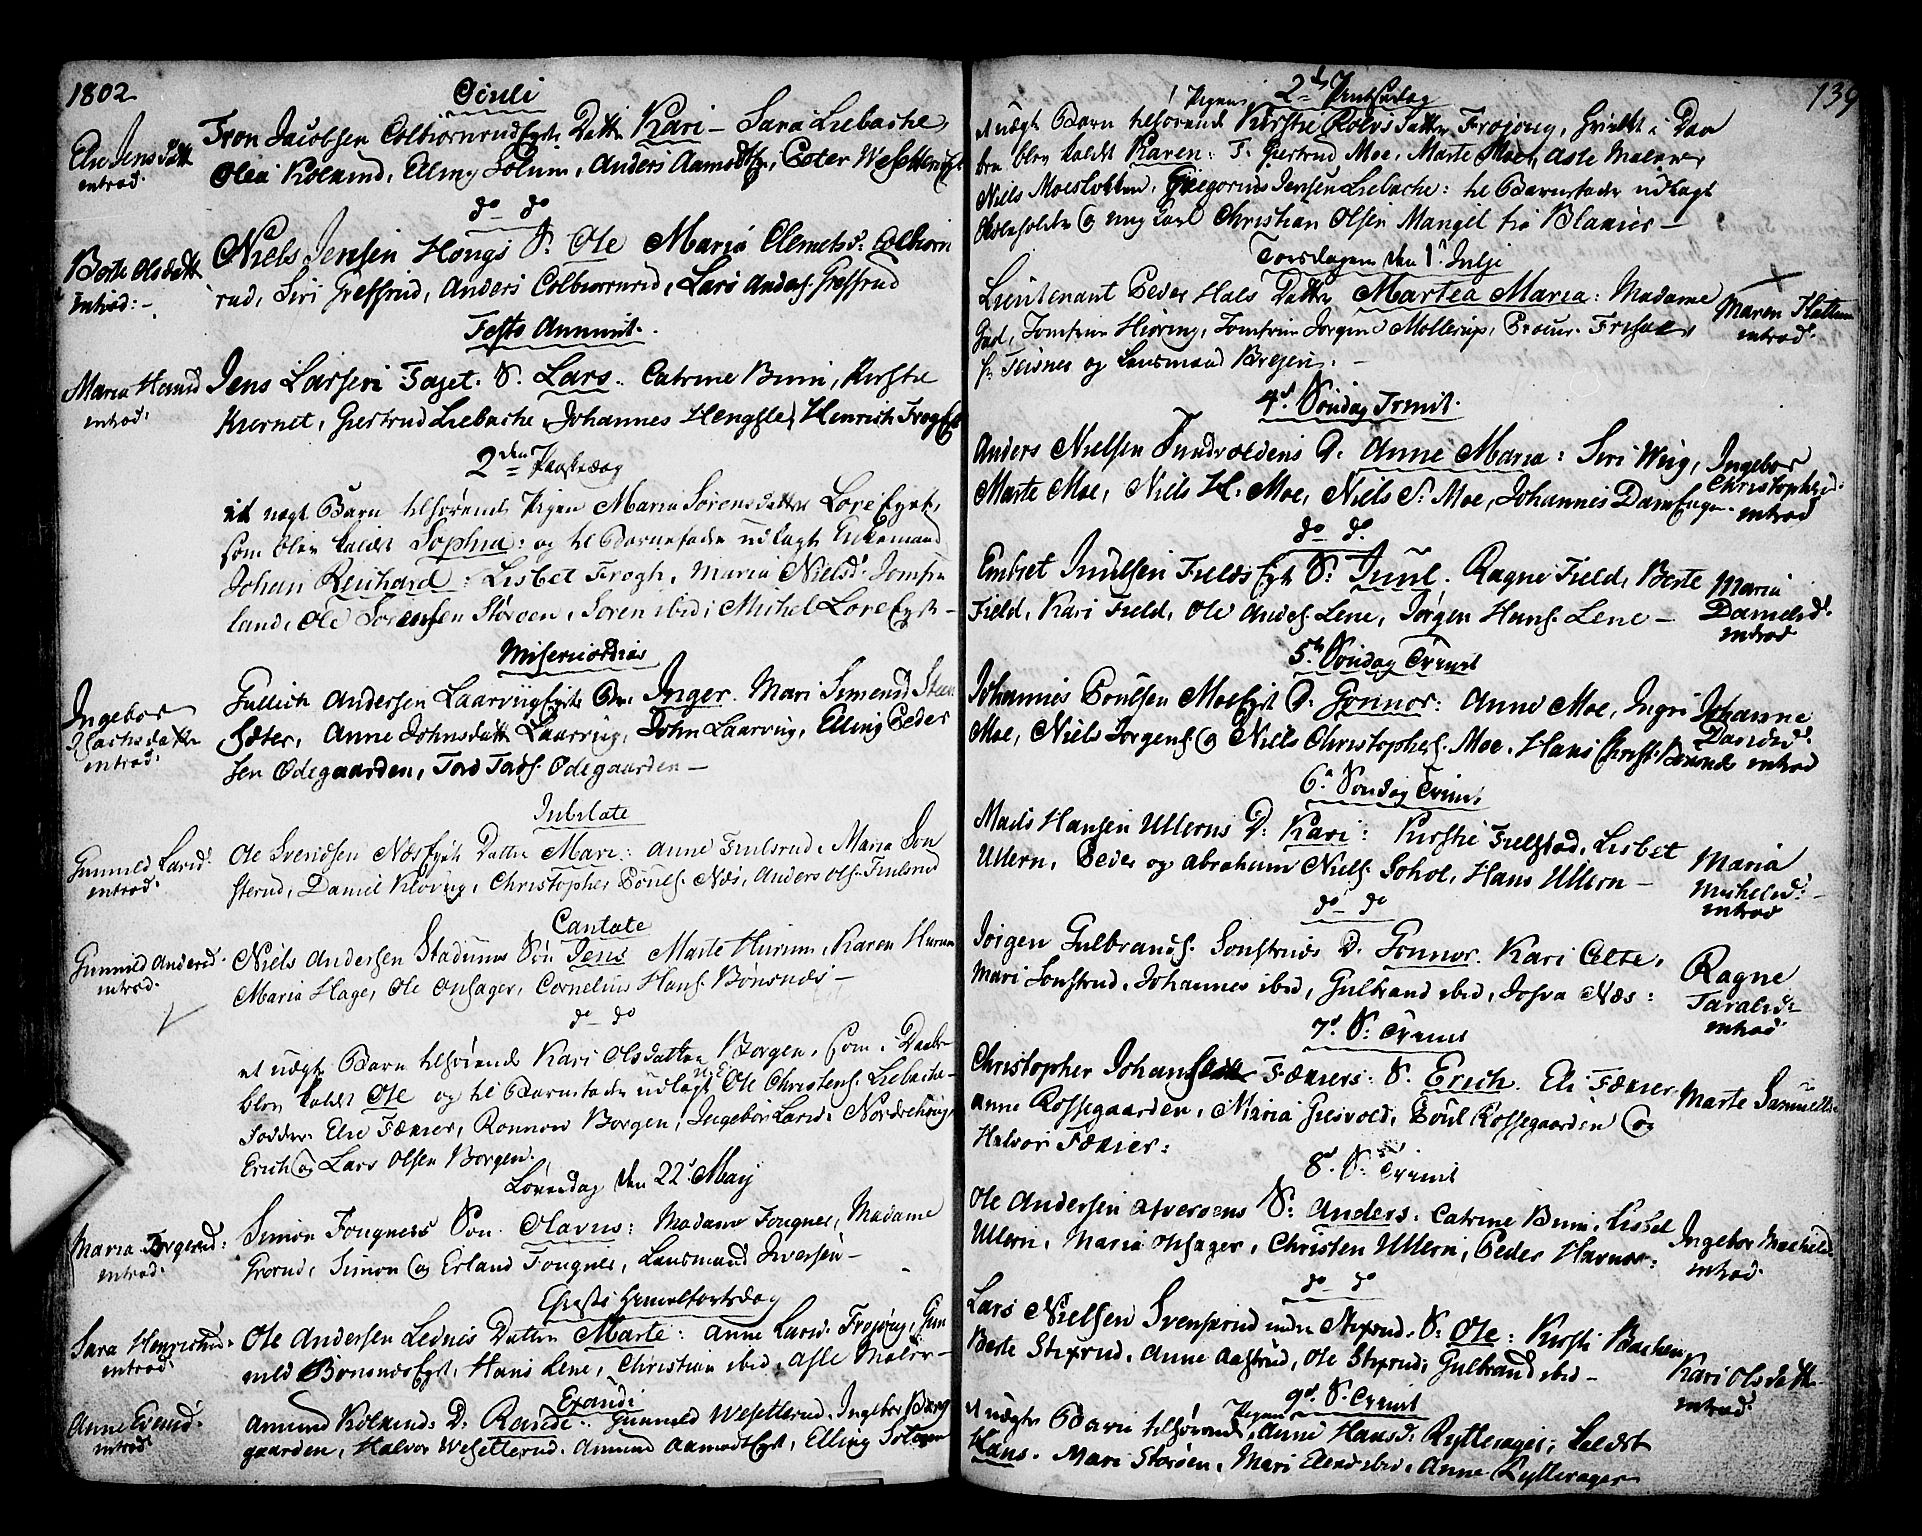 1802
Oculi
Elie Jensdatt
introd.
Tron Jacobsen Colbiornrud Eyet Datter Kari - Sara Liebache
Olea Kolkind, Elling Solum, Anders Aamodt Eyr, Peter Wesetterud Eyet
do do
Berte Olsdatt
introd: -
Niels Jensen Hougs S. Ole Maria Clemetsd: Colbiorn
rud, Siri Gressrud, Anders Colbiornrud, Lars Anders. Gressrud
Festo Annunt.
Maria Hansd
introd:
Jens Larsen Faget. S. Lars. Catrine Büni, Kirstie
Kiernet, Giertrud Liebache, Johannes Hengsle, Henrich Frog Eyet
2den Paaskedag
et uægt Barn tilhørende Pigen Maria Sørensdatter Lore Eyet,
som blev kaldt Sophia: og til Barnefader udlagt Enkemand
Johan Reinhard: Lisbet Frogh, Maria Nielsd. Jomfru
land, Ole Sørensen Støroen, Søren ibid, Michel Lore Eyet -
Misericordias
Ingebor
Isachsdatter
introd:
Gullich Andersen Laarviig Eyet Dr. Inger. Mari Simensd Steen
sæter, Anne Johnsdatt Laarviig, John Laarviig, Elling Peder
sen Ødegaarden, Tord Tords. Ødegaarden -
Jubilate
Gunnild Larsd:
introd.
Ole Svendsen Næs Eyet Datter Mari: Anne Fiulsrud, Maria Son
sterud, Daniel Kloving, Christopher Pouels. Næs, Anders Ols. Fiulsrud
Cantate
Gunnild Andersd.
introd.
Niels Andersen Stadums Søn Jens Marte Hurum, Karen Hurum
Maria Hage, Ole Onsager, Cornelius Hans. Bonsnæs -
do do
et uægt Barn tilhørende Kari Olsdatter Borgen, som i Daaben
blev kaldt Ole og til Barnefader udlagt Ole Christens. Liebache -
Fodder. Elie Fækier, Ronnow Borgen, Ingebor Larsd. Nordrehrug
Erich og Lars Olsen Borgen.
Løverdag den 22d May
Maria Jørgensd:
introd.
Simon Fougners Søn Olavus: Madame Fougner, Madame
Grorud, Simon og Erland Fougner, Lensmand Iversen -
Christi Himmelfartsdag
Sara Henrichsd.
introd.
Ole Andersen Lednis Datter Marte: Anne Larsd. Frojoug, Gun
nild Bonsnæs Eyet, Hans Lene, Christian ibid, Asle Maler -
Exaudi
Anne Evensd.
introd.
Amund Kolkinds D. Randi. Gunnild Wesetterud, Ingebor Berg
gaarden, Halvor Wesetterud, Amund Aamodt Eyet, Elling Solum
139
2d Pintsedag
et uægt Barn tilhørende Pigen Kirstie Rolvsdatter Frojoug, hvilket i Daa
ben blev kaldt Karen: F. Giertrud Moe, Marte Moe, Asle Maler
Niels Moeslotten, Gregorius Jensen Liebache: til Barnefader udlagt
og ung Carl Christian Olsen Mangel fra Blaaier -
Torsdagen den 1t Julii
Lieutenant Peder Hals Datter Martea Maria: Madame
Gad, Jomfrue Hiøring, Jomfrue Jørgen Mollerup, Procur. Friser
hr. Teisner og Lensmand Bregen. -
Maren Klattum
introd:
4d Søndag Trinit.
Anders Nielsen Tundvoldens D. Anne Maria: Siri Wiig,
Marte Moe, Niels H. Moe, Niels S. Moe, Johannis Dam Enger.
Ingebor
Christophersd.
introd
do do.
Embret Juulsen Fields Eyet S. Juul. Ragne Field, Berte
Field, Kari Field, Ole Anders. Lene, Jørgen Hans. Lene -
Maria
Danielsd.
introd
5t Søndag Trinit
Johannis Poulsen Moe Eyet D. Gonnor: Anne Moe, Ingri
Moe, Niels Jørgens. og Niels Christophers. Moe, Hans Christ. Bonsnæs
Johanne
Davidsd.
introd
6d Søndag Trinit
Mads Hansen Ullerns D: Kari: Kirstie Fielstad, Lisbet
Ullern, Peder og Abraham Niels. Sohol, Hans Ullern -
Maria
Michelsd: -
introd
do do
Jørgen Gulbrands. Sonstruds D. Gonnor. Kari Olte,
Mari Sonstrud, Johannes ibid, Gulbrand ibid, Josva Næs:
Ragne
Taralsd:
introd
7d S: Trinit
Christopher Johans Fækiers: S. Erich. Eli Fækier
Anne Rossegaarden, Maria Gresvold, Poul Rossegaarden og
Halvor Fækier:
Marte Samuelsd.
8d. S: Trinit
Ole Andersen Aswersens S: Anders. Catrine Büni, Lisbet
Ullern, Maria Opsager, Christen Ullern, Peder Havnor:
Ingebor Michelsd
introd.
do do
Lars Nielsen Svensrud under Stixrud. S: Ole: Kirsti Bachen,
Berte Stixrud, Anne Aastrud, Ole Stixrud, Gulbrand ibid -
Kari Olsdatt
introd.
9d. S. Trinit
et uægte Barn tilhørende Pigen Anne Hansd. Rytterager, kaldet
Hans. Mari Storøen, Mari Elend ibid, Anne Rytterager